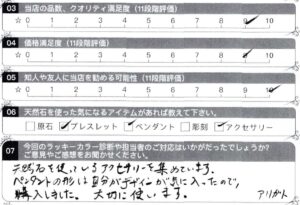 03 当店の品数、クオリティ満足度（11段階評価）
☆ 0 1 2 3 4 5 6 7 8 9 10
04 価格満足度（11段階評価）
☆ 0 1 2 3 4 5 6 7 8 9 10
05 知人や友人に当店を勧める可能性（11段階評価）
☆ 0 1 2 3 4 5 6 7 8 9 10
06 天然石を使った気になるアイテムがあれば教えて下さい。
□原石 ✓ブレスレット ✓ペンダント □彫刻 ✓アクセサリー
07 今回のラッキーカラー診断や担当者のご対応はいかがだったでしょうか？
ご意見やご感想をお聞かせください。
天然石を使っているアクセサリーを集めています。
ペンダントの形は自分がデザインが気に入ったので、
購入しました。大切に使います。
アリガト